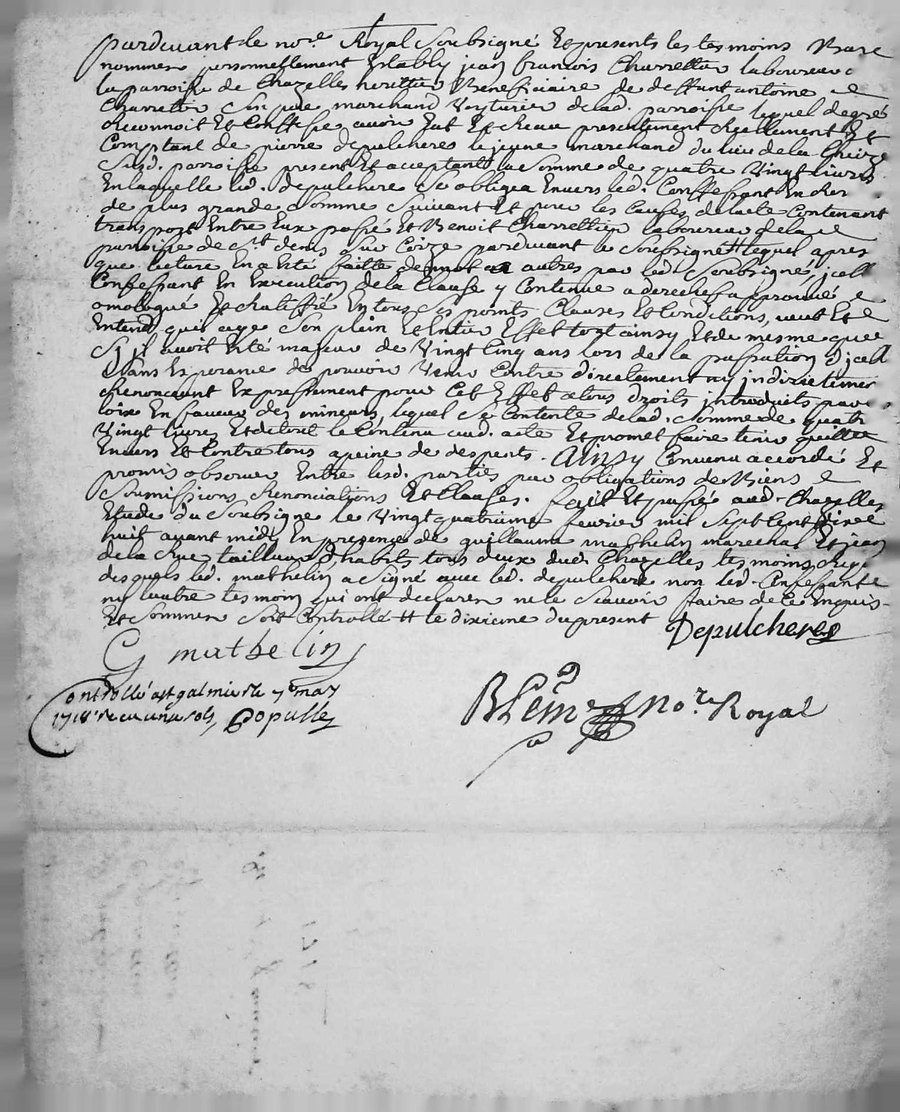 pardevant le no.re Royal soubsigné Et presents les tesmoins Bas e
nommes personnellement Estably jean francois Charrettier laboureur de
la parroisse de Chazelles herittier Beneficiaire de deffunt antoine
Charrettier son pere marchand Voyturier de lad. parroisse lequel de gré
Reconnoit Et Confesse avoir Eut Et Receu presentement Reellement Et
Comptant de pierre depulcheres le jeune marchand du lieu de la
susd. parroisse present Et acceptant la somme de quatre Vingt livres
En laquelle led. depulchere se obligea Envers led. Confessant En
de plus grande somme suivant Et pour les Causes de lacte Contenant
transport Entre Eux passé Et Benoit Charrettier laboureur de la
parroisse de St denis sur Coize pardevant le soussigné lequel apres
que lecture En a Eté faitte de mot a autres par led. soubsigné, jcell
Confessant En Execution de la Clause y Contenue a derechef approuvé e
omologué Et Ratiffié En tous ses points Clauses Et Conditions, veut Et
Entend quil aye son plein Et Entier Effet tout ainsy Et de mesme que
s'il avoit Eté majeur de Vingt Cinq ans lors de la passation d'jcell
sans Esperance de pouvoir Venir Contre directement ny indirectement
Renoncant Expressement pour Cet Effet a tous droits introduits par
loix En faveur des mineurs, lequel se Contente de lad. somme de quatre
Vingt livres Et de tout le Contenu aud. acte Et promet faire tenir quitte
Envers Et Contre tous a peine de despents. Ainsy Convenu accordé Et
promis observer Entre lesd. parties par obligations de Biens e
soumissions Renonciations Et Clauses. fait Et passé aud. Chazelles
Etude du soubsigné le Vingt quatrieme fevrier mil sept Cent dixe
huit avant midy En presence de guillaume mathelin marechal Et jean
de la Rue tailleur d'habits tous deux dud. Chazelles tesmoins
desquels led. mathelin a signé avec led. depulchere non led. Confessant e
ny lautre tesmoin qui ont declarer ne le scavoir faire de Ce Enquis
Et sommes soit Controllé le dixieme du present
Depulcheres
G mathelin
Controllé a St galmier le 7e may
1718 Receu
no.re Royal